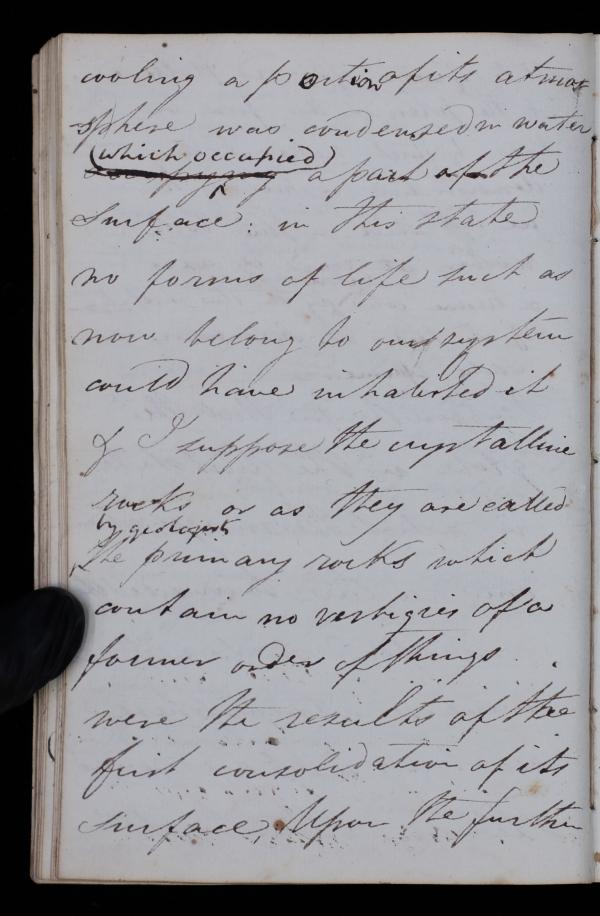 cooling a portion of its atmos
sphere was condensed in water
(which occupied)
occupying a part of the
Surface: in this state
no forms of life such as
now belong to our system
could have inhabited it
& I suppose the crystalline
rocks or as they are called
by geologists
the primary rocks which
contain no vestigies of a
former order of things
were the results of the
first consolidation of its
surface. Upon the further